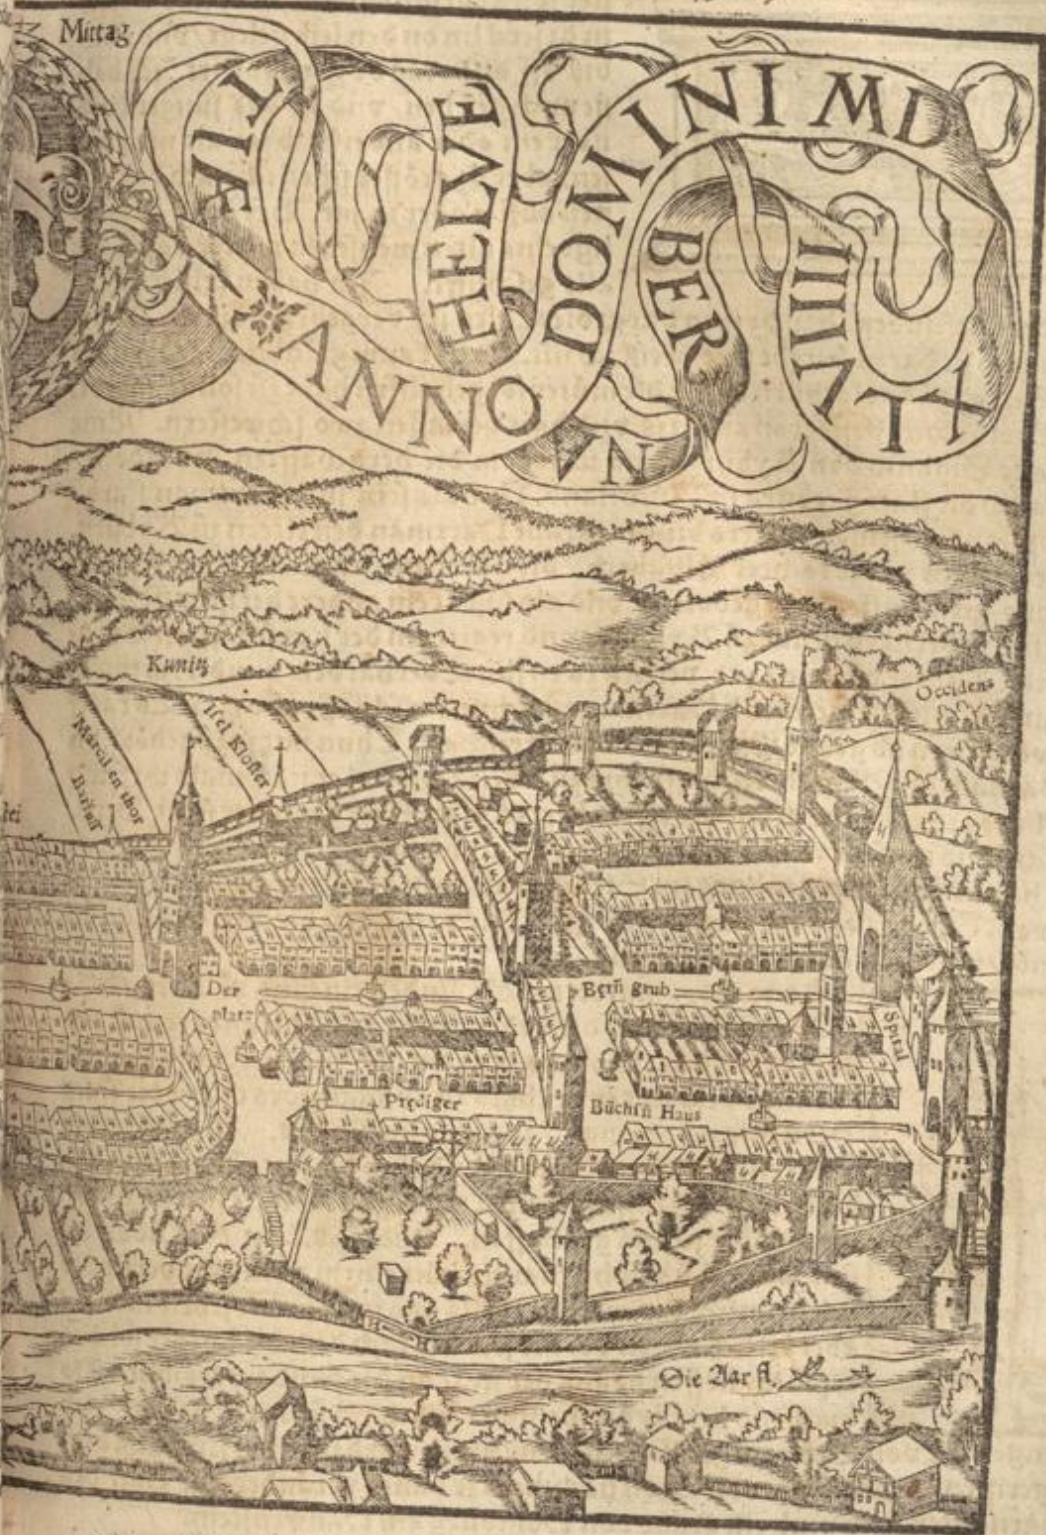 Mittag
ANNO DOMINI MD
XLVIIII
BER
NA
HELVE
TIÆ
Kunitz
Occidens
Marcili en thor
Barfuss
Isel Kloster
Der
platz
Bern̄ grub
Spital
Prediger
Büchsn̄ Haus
Die Aar fl.